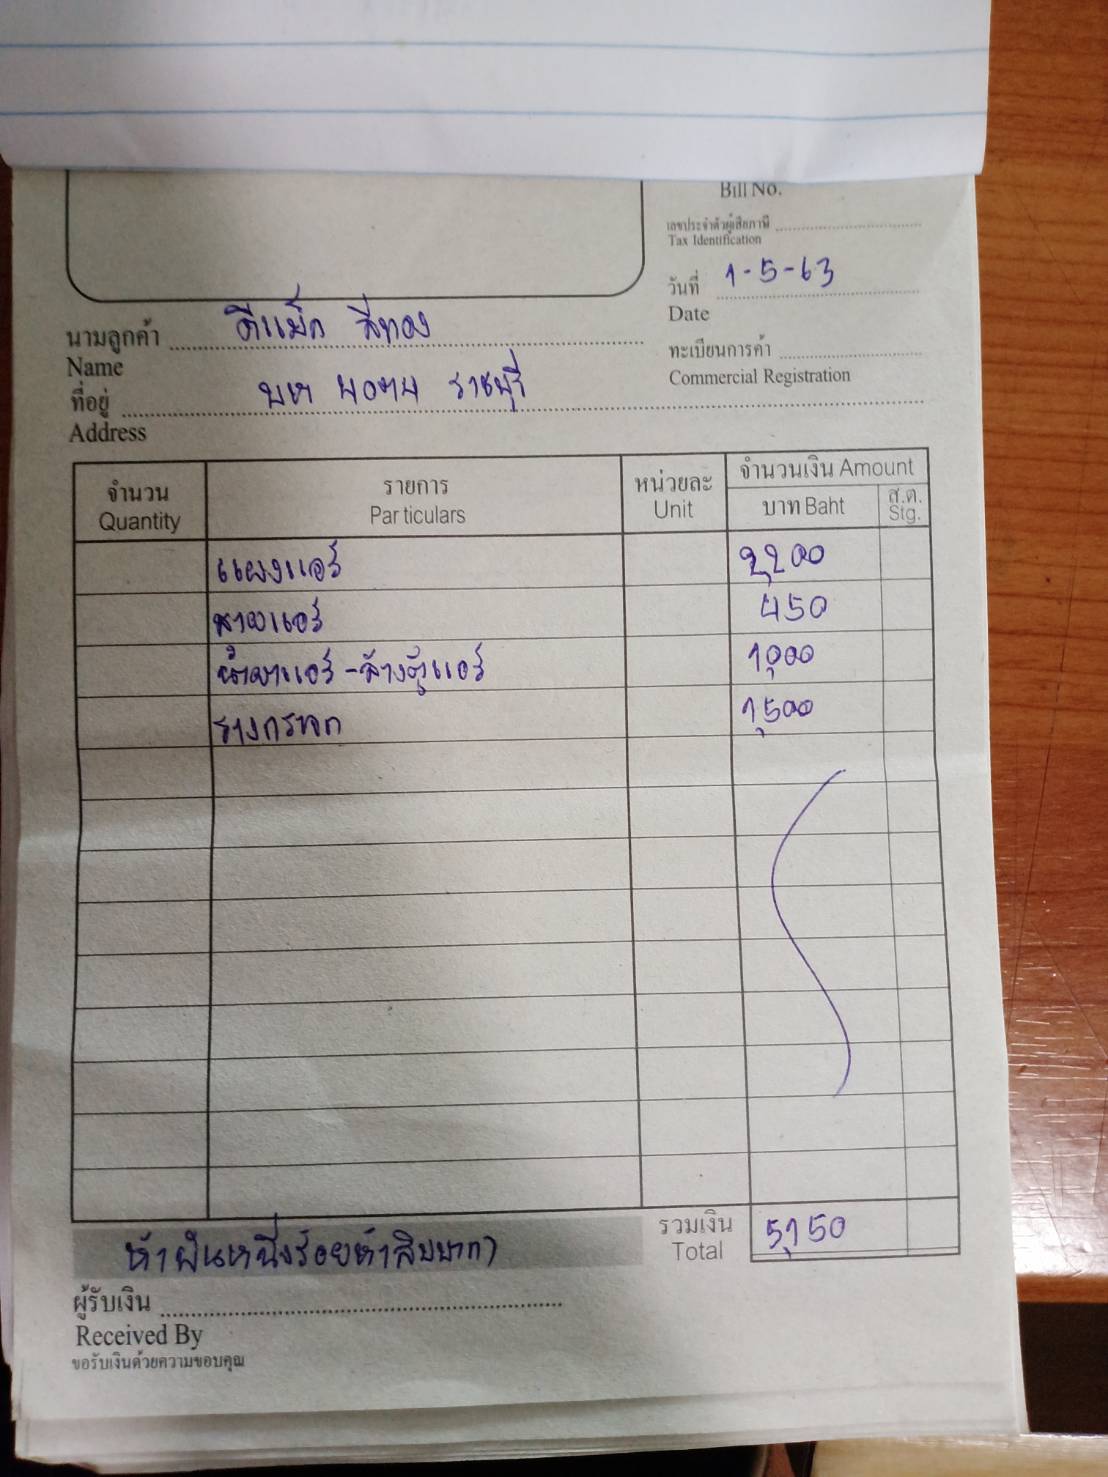 Bill No.
เลขประจำตัวผู้เสียภาษี
Tax Identification
วันที่ 1-5-63
Date
นามลูกค้า ดีแม็ก สีทอง
Name
ทะเบียนการค้า
Commercial Registration
ที่อยู่ ราชบุรี
Address
จำนวน รายการ หน่วยละ จำนวนเงิน Amount
Quantity Particulars Unit บาท Baht ส.ต. Stg.
แผงแอร์ 2,200
สายแอร์ 450
น้ำยาแอร์ - ล้างตู้แอร์ 1,000
รางกระจก 1,500
รวมเงิน 5,150
Total
ห้าพันหนึ่งร้อยห้าสิบบาท
ผู้รับเงิน
Received By
ขอรับเงินด้วยความขอบคุณ